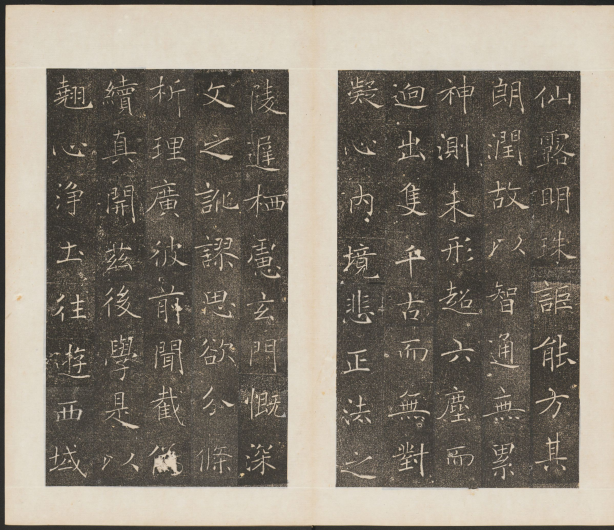 仙露明珠詎能方其
朗潤故以智通無累
神測未形超六塵而
逈出隻千古而無對
凝心內境悲正法之
陵遲栖慮玄門慨深
文之訛謬思欲分條
析理廣彼前聞截
續真開茲後學是以
翹心淨土往遊西域